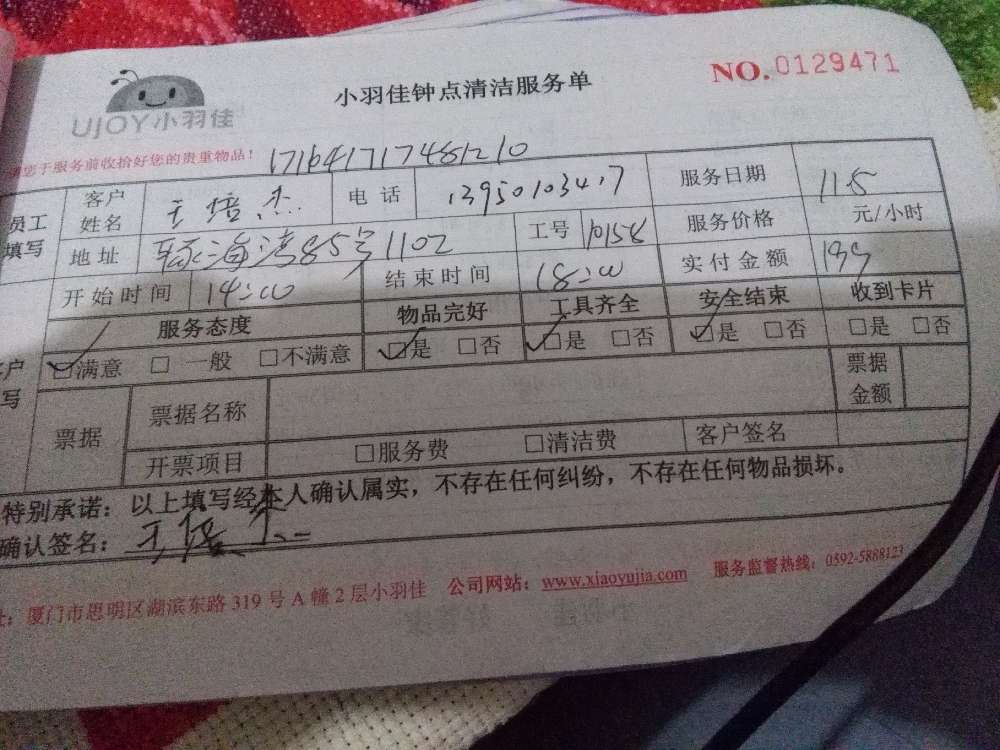 UJOY小羽佳
小羽佳钟点清洁服务单
NO.0129471
您于服务前收拾好您的贵重物品!
员工填写 客户姓名 王培杰 电话 13950103417 服务日期 11.5
地址 海湾85号1102 工号 10158 服务价格 元/小时
开始时间 14:00 结束时间 18:00 实付金额 199
服务态度 物品完好 工具齐全 安全结束 收到卡片
☑满意 □一般 □不满意 ☑是 □否 ☑是 □否 ☑是 □否 □是 □否
票据 票据名称 票据金额
开票项目 □服务费 □清洁费 客户签名
特别承诺：以上填写经本人确认属实，不存在任何纠纷，不存在任何物品损坏。
确认签名：王培杰
址：厦门市思明区湖滨东路319号A幢2层小羽佳 公司网站：www.xiaoyujia.com 服务监督热线：0592-5888123